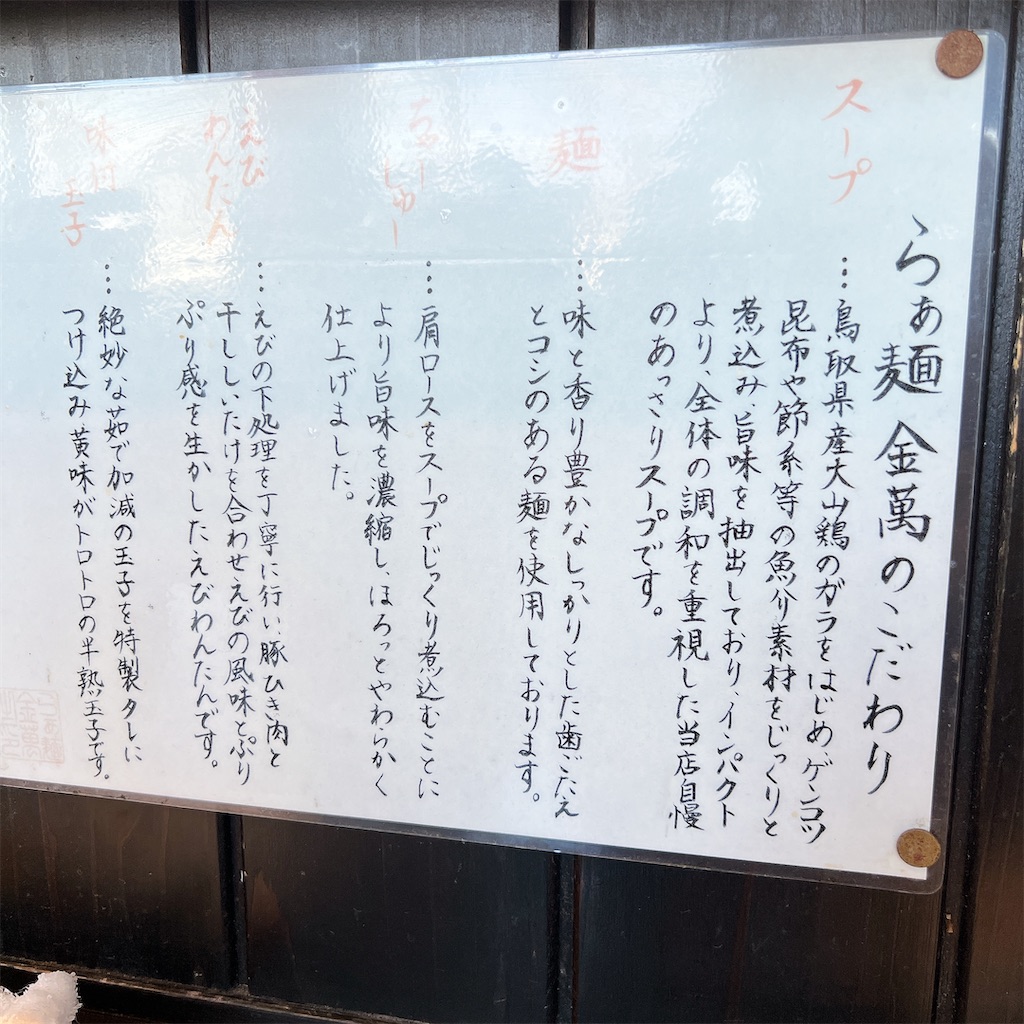 らぁ麺 金萬のこだわり
スープ
…鳥取県産大山鶏のガラをはじめ、ゲンコツ
昆布や節系等の魚介素材をじっくりと
煮込み旨味を抽出しており、インパクト
より、全体の調和を重視した当店自慢
のあっさりスープです。
麺
…味と香り豊かなしっかりとした歯ごたえ
とコシのある麺を使用しております。
ちゃーしゅー
…肩ロースをスープでじっくり煮込むことに
より旨味を濃縮し、ほろっとやわらかく
仕上げました。
えび
わんたん
…えびの下処理を丁寧に行い、豚ひき肉と
干ししいたけを合わせえびの風味とぷり
ぷり感を生かしたえびわんたんです。
味付
玉子
…絶妙な茹で加減の玉子を特製タレに
つけ込み黄味がトロトロの半熟玉子です。